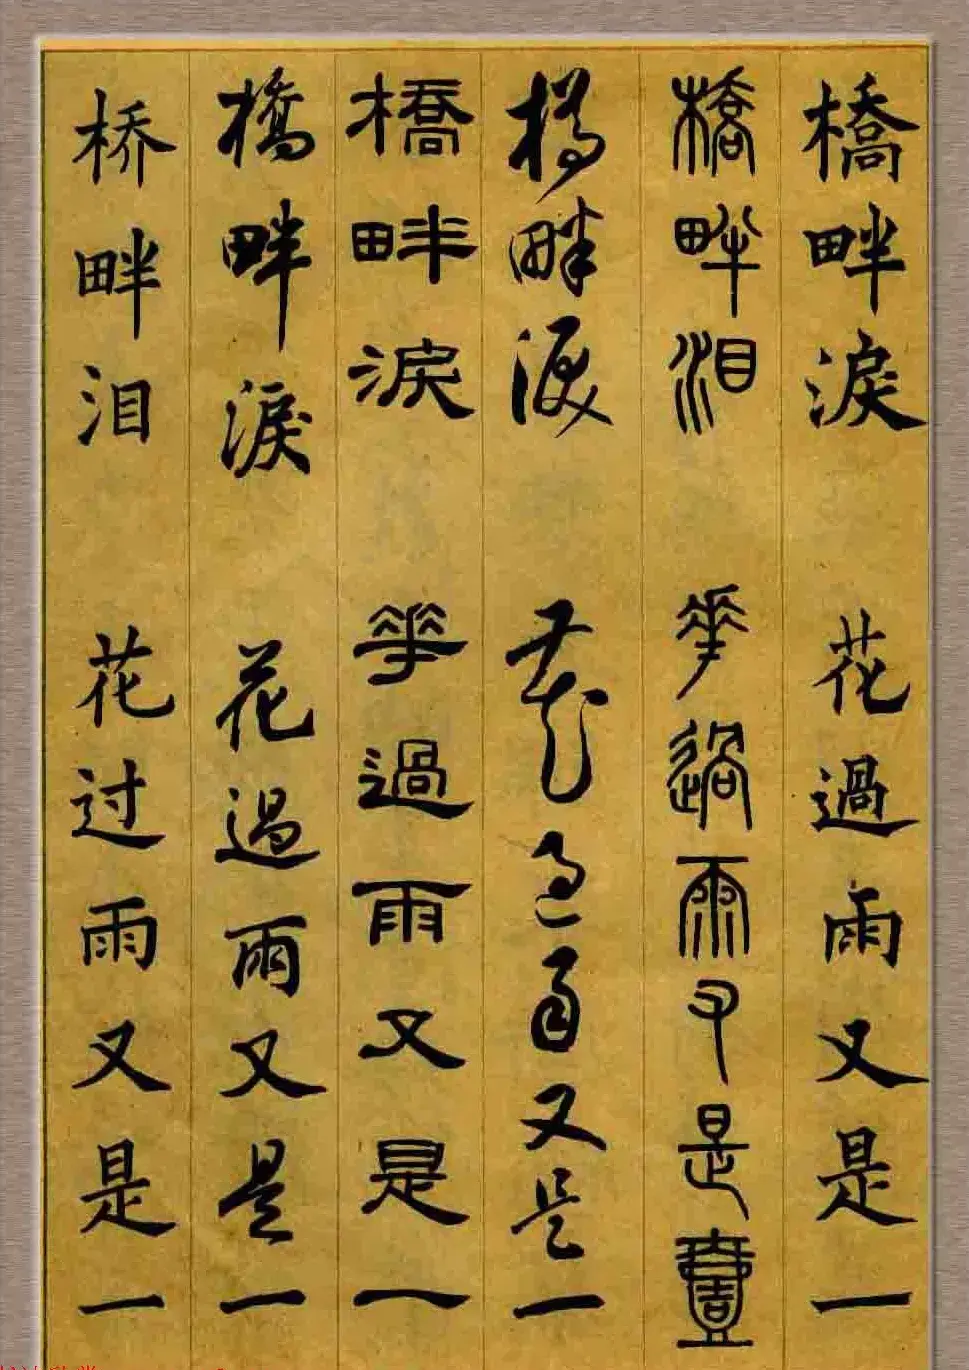 橋畔淚 花過雨又是一
橋畔泪 華過雨又是壹
橋畔淚 花過雨又是一
橋畔淚 華過雨又是一
橋畔淚 花過雨又是一
桥畔泪 花过雨又是一